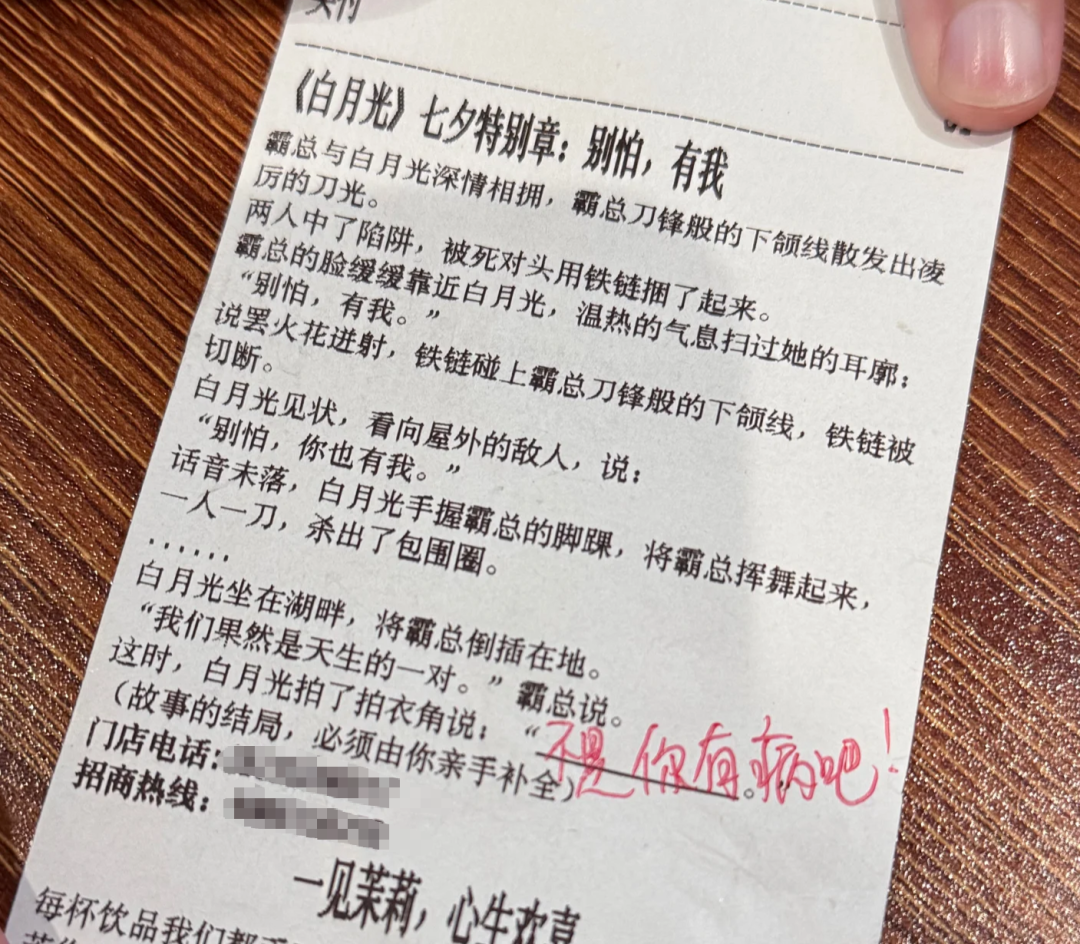 《白月光》七夕特别章：别怕，有我
霸总与白月光深情相拥，霸总刀锋般的下颌线散发出凌
厉的刀光。
两人中了陷阱，被死对头用铁链捆了起来。
霸总的脸缓缓靠近白月光，温热的气息扫过她的耳廓：
“别怕，有我。”
说罢火花迸射，铁链碰上霸总刀锋般的下颌线，铁链被
切断。
白月光见状，看向屋外的敌人，说：
“别怕，你也有我。”
话音未落，白月光手握霸总的脚踝，将霸总挥舞起来，
一人一刀，杀出了包围圈。
......
白月光坐在湖畔，将霸总倒插在地。
“我们果然是天生的一对。”霸总说。
这时，白月光拍了拍衣角说：“不是你有病吧！。”
（故事的结局，必须由你亲手补全）
门店电话：
招商热线：
一见茉莉，心生欢喜
每杯饮品我们都